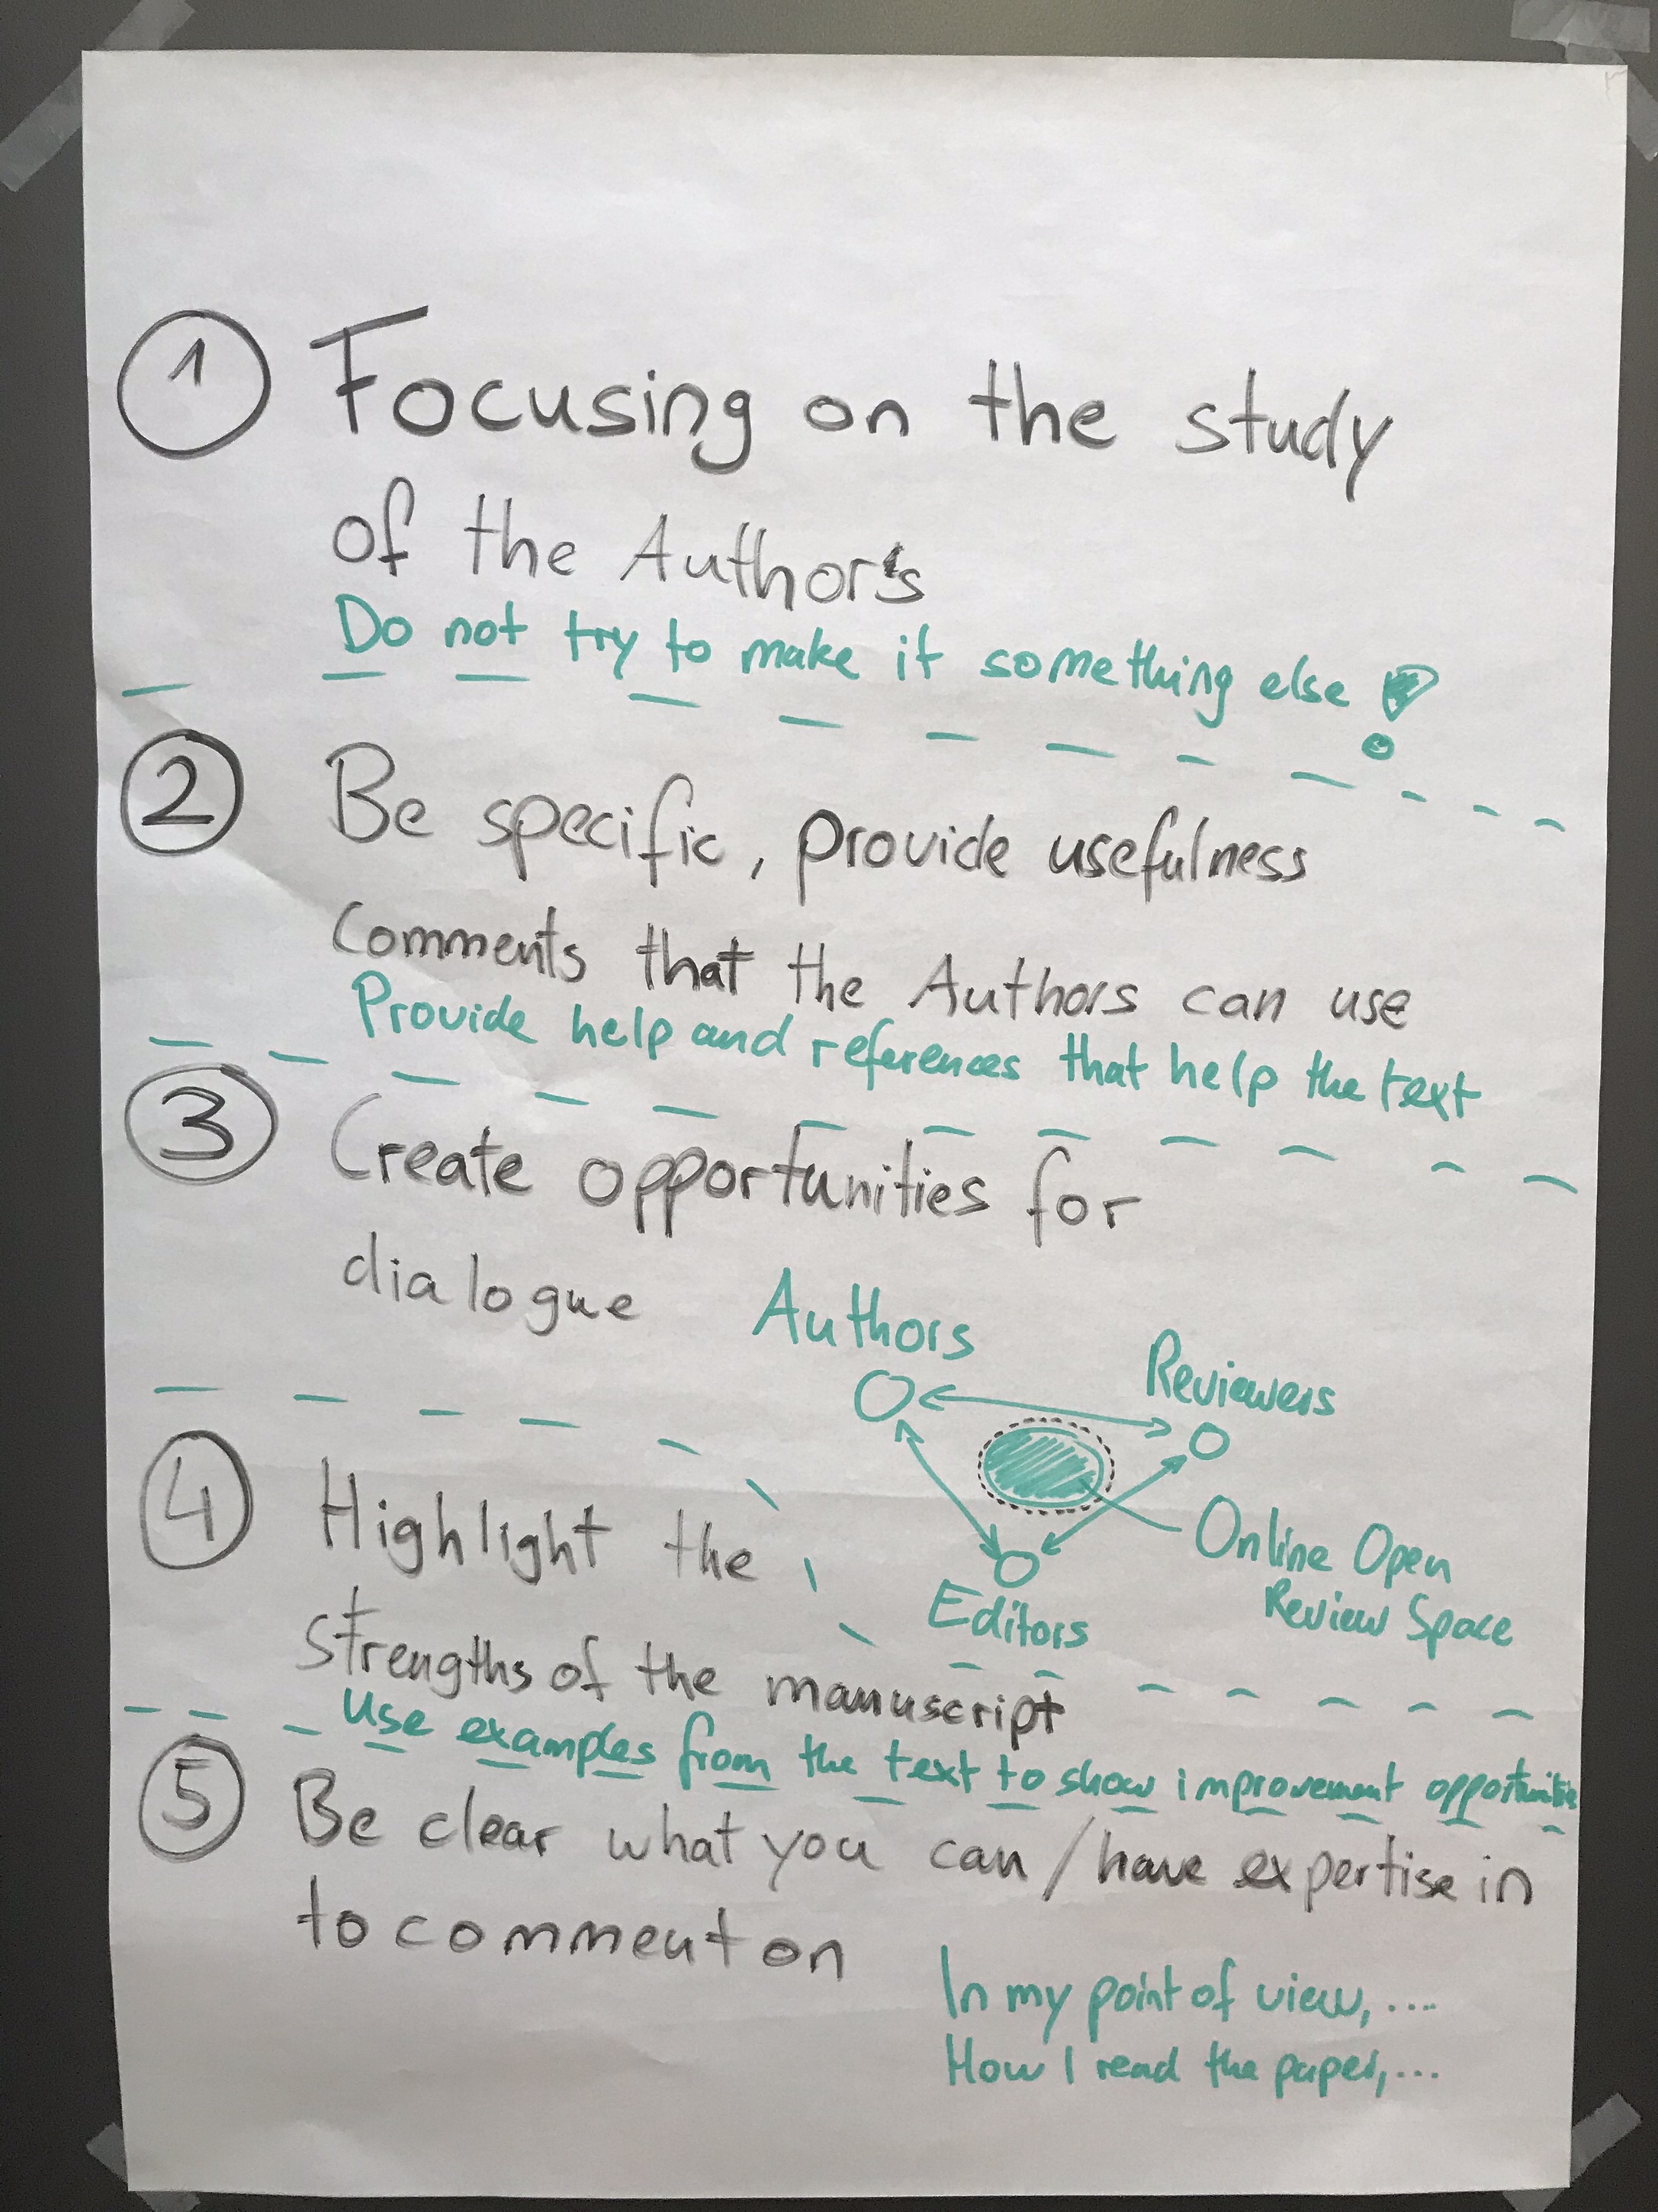 1 Focusing on the study
of the Author's
Do not try to make it something else!
2 Be specific, provide usefulness
Comments that the Authors can use
Provide help and references that help the text
3 Create opportunities for
dialogue
Authors
Reviewers
Online Open
Review Space
Editors
4 Highlight the
strengths of the manuscript
Use examples from the text to show improvement opportunities
5 Be clear what you can/have expertise in
to comment on
In my point of view, ....
How I read the paper, ...